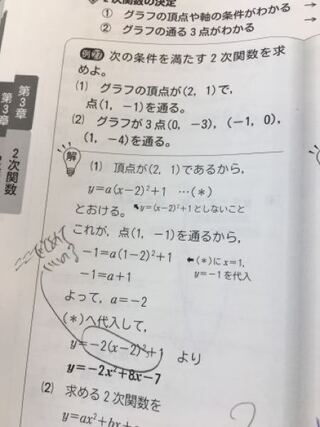 2次関数の決定
① グラフの頂点や軸の条件がわかる →
② グラフの通る3点がわかる →
第3章
第3章
2次関数
次の条件を満たす2次関数を求
めよ。
(1) グラフの頂点が(2, 1)で,
点(1, -1)を通る。
(2) グラフが3点(0, -3), (-1, 0),
(1, -4)を通る。
解
(1) 頂点が(2, 1)であるから,
y=a(x-2)²+1 …(*)
とおける。 y=(x-2)²+1としないこと
これが, 点(1, -1)を通るから,
-1=a(1-2)²+1 ←(*)にx=1,
-1=a+1 y=-1を代入
よって, a=-2
(*)へ代入して,
y=-2(x-2)²+1 より
y=-2x²+8x-7
(2) 求める2次関数を